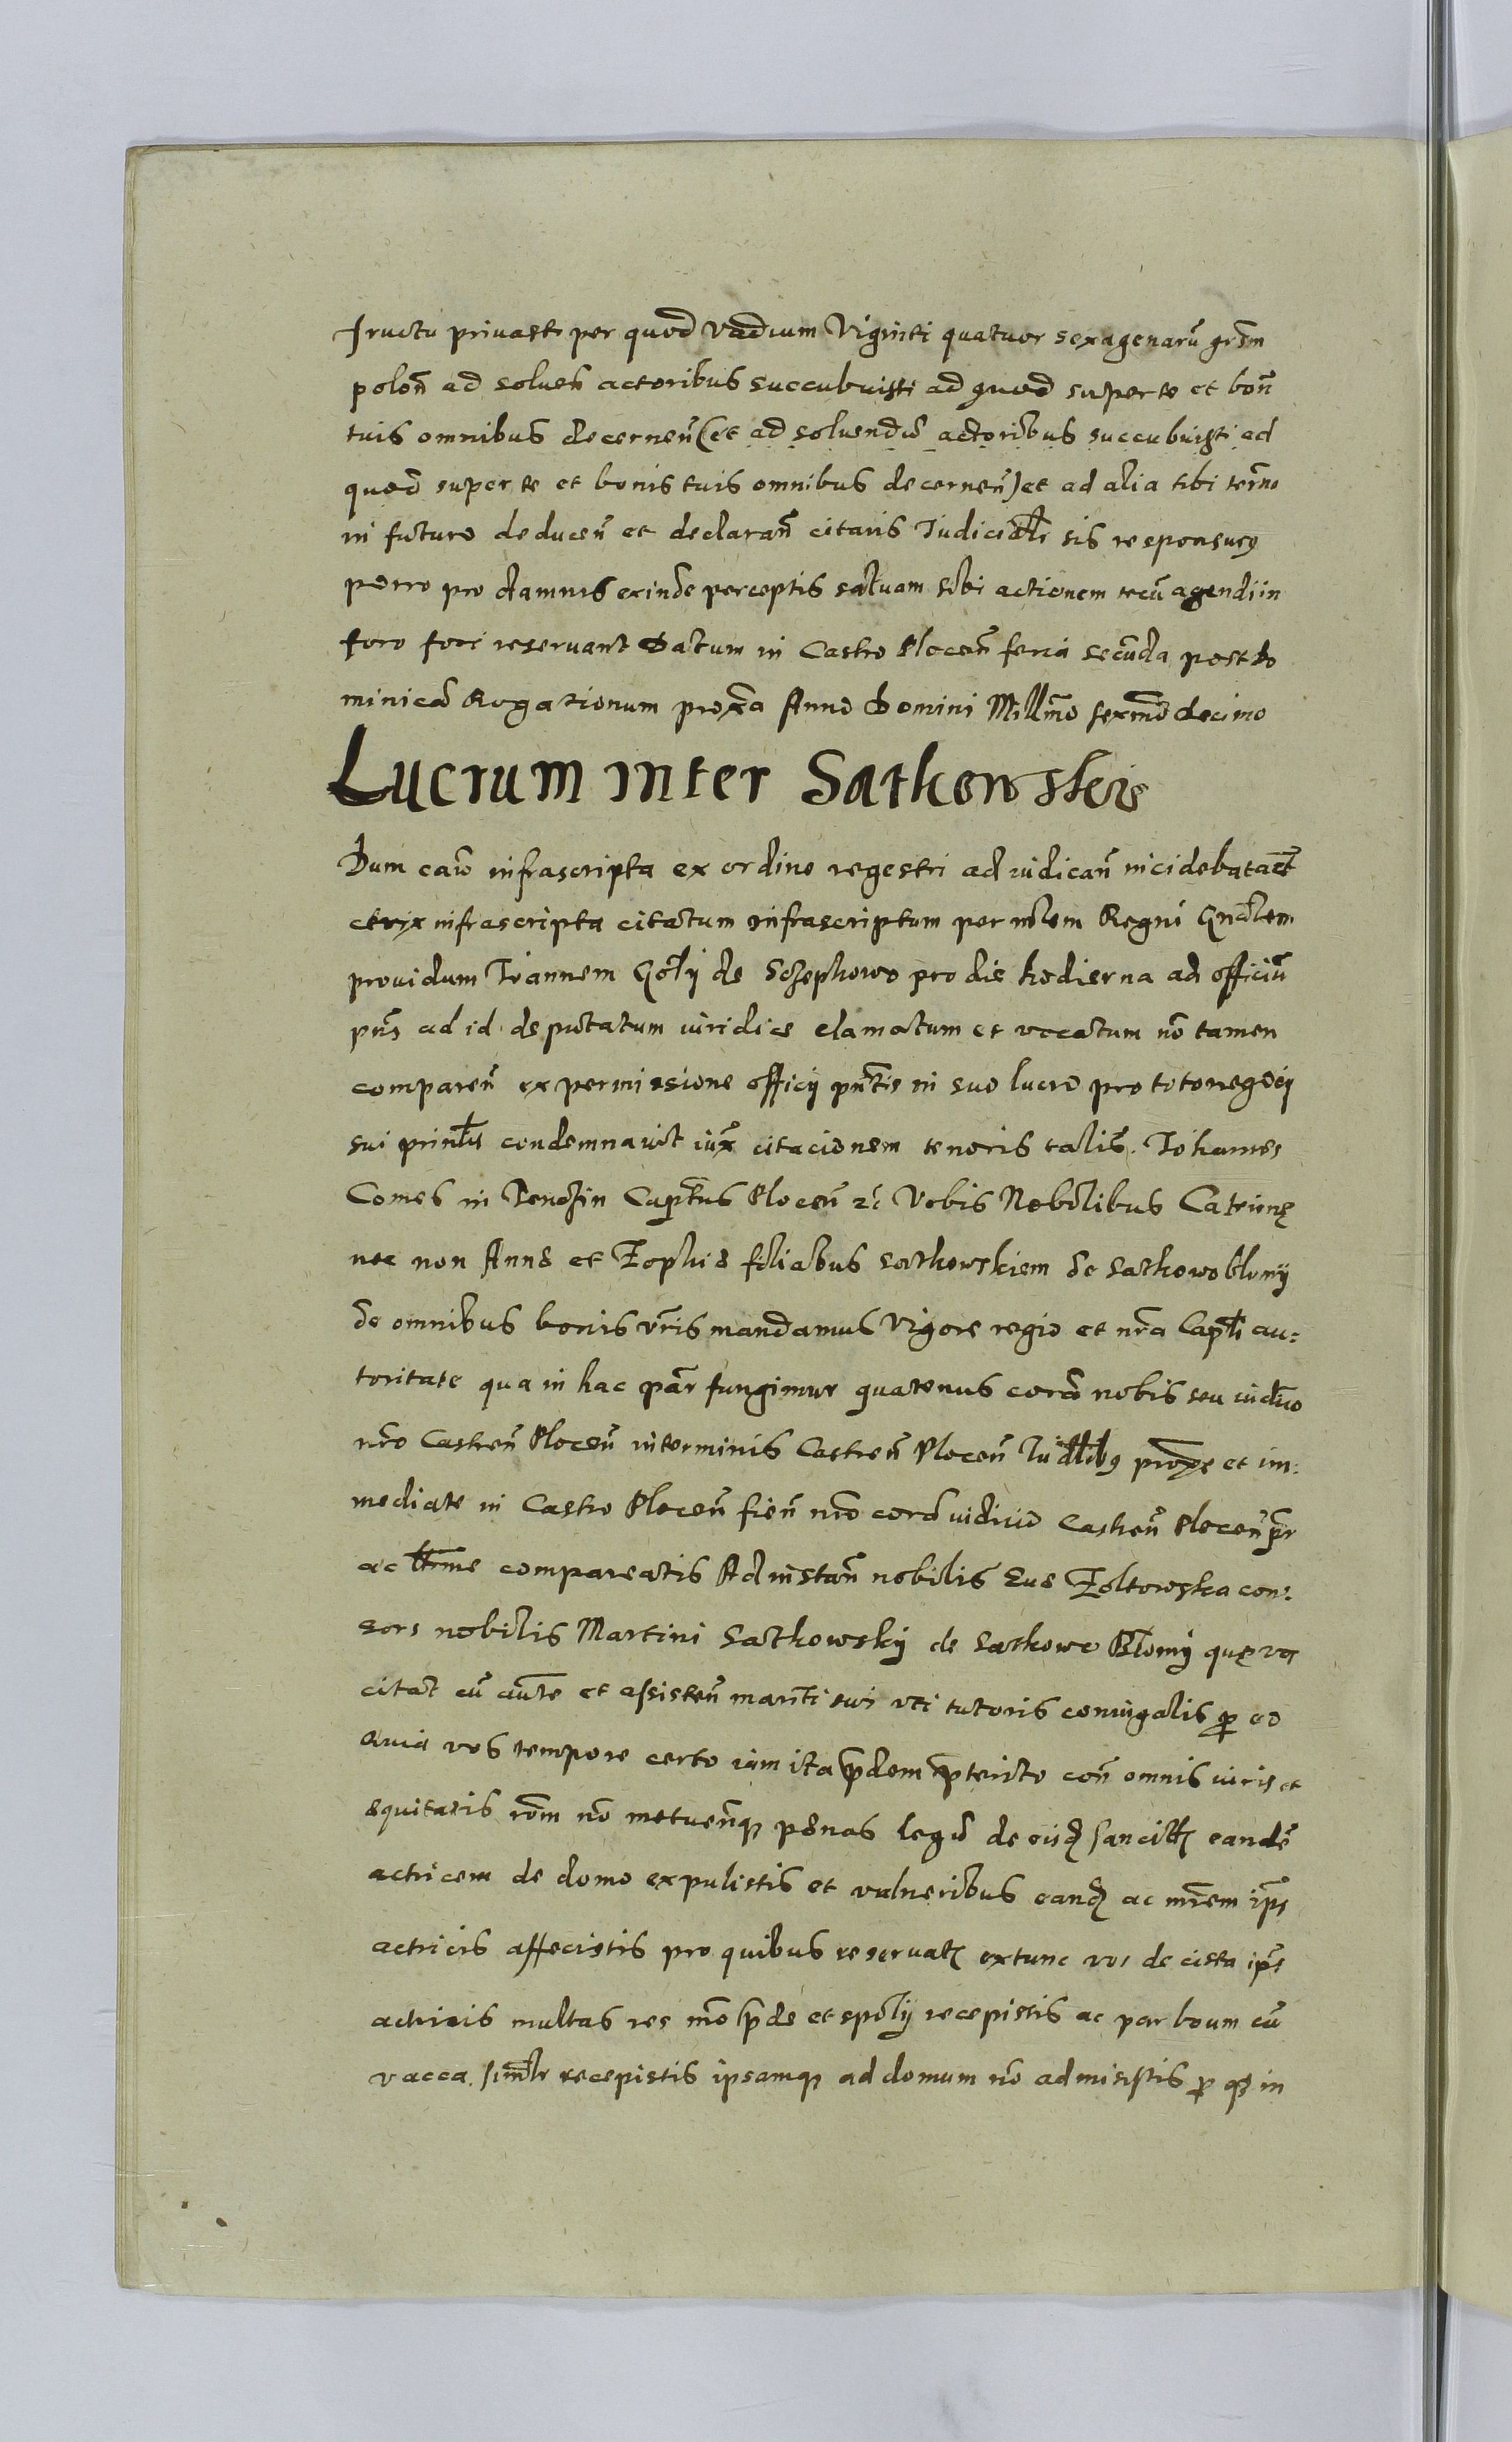 fructu privasti per quod vadium Viginti quatuor sexagenarũ grõm
poloñ ad solueñ actoribus succubuisti ad quod super te et boñ
tuis omnibus decerneñ (et ad soluendũ actoribus succubuisti ad
quod super te et bonis tuis omnibus decerneñ) et ad alia tibi termo
in futuro deduceñ et declarañ citaris Iudicialr sis responsurꝯ
porro pro damnis exinde perceptis saluam sibi actionem tecũ agendi in
foro fori reservant Datum in Castro Ploceñ feria secunda post do
minicã Rogationum proxa Anno Domini Millmo sexmo decimo
Lucrum inter Satkowskie
Dum cau infrascripta ex ordine regestri ad iudicañ incidebat act
ctrix infrascripta citatum infrascriptum per mlem Regni Gnalem
providum Joannem Goly de Sczepkowo pro die hodierna ad officiũ
pñs ad id deputatum iuridice clamatum et vocatum nõ tamen
compareñ ex permissione officy pñtis in suo lucro pro toto negocy
sui prinlis condemnavit iuxa citacionem tenoris talis. Johannes
Comes in Tenczin Captneus Ploceñ zc Vobis Nobilibus Catrinę
nec non Anne et Zophie filiabus Satkowskiem de Satkowo Blomy
de omnibus bonis vris mandamus Vigore regio et nra Capli au:
toritate qua in hac par fungimur quatenus corã nobis seu iudicio
nro Castreñ Ploceñ in terminis Castreñ Ploceñ Iudlibꝯ proxe et im:
mediate in Castro Ploceñ fieñ nro corã iudicio Castreñ Ploceñ pr
ac ltime compareatis Ad instañ nobilis Eue Zoltowska con:
sors nobilis Martini Satkowsky de Satkowo Blomy quę vos
citat cũ aute et assisteñ mariti sui vti tutoris coniugalis p eo
Quia vos tempore certo iam ita pdem pterito coñ omnis iuris et
equitatis rom nõ metuenqꝫ penas legũ de eisd sancitt eandẽ
actricem de domo expulistis et vulneribus eand ac mrem ips
actricis affecistis pro quibus reservat extunc vos de cista ips
actricis multas res mo pde et spoly recepistis ac par boum cũ
vacca simlr recepistis ipsamqꝫ ad domum nõ admisistis p qꝫ in